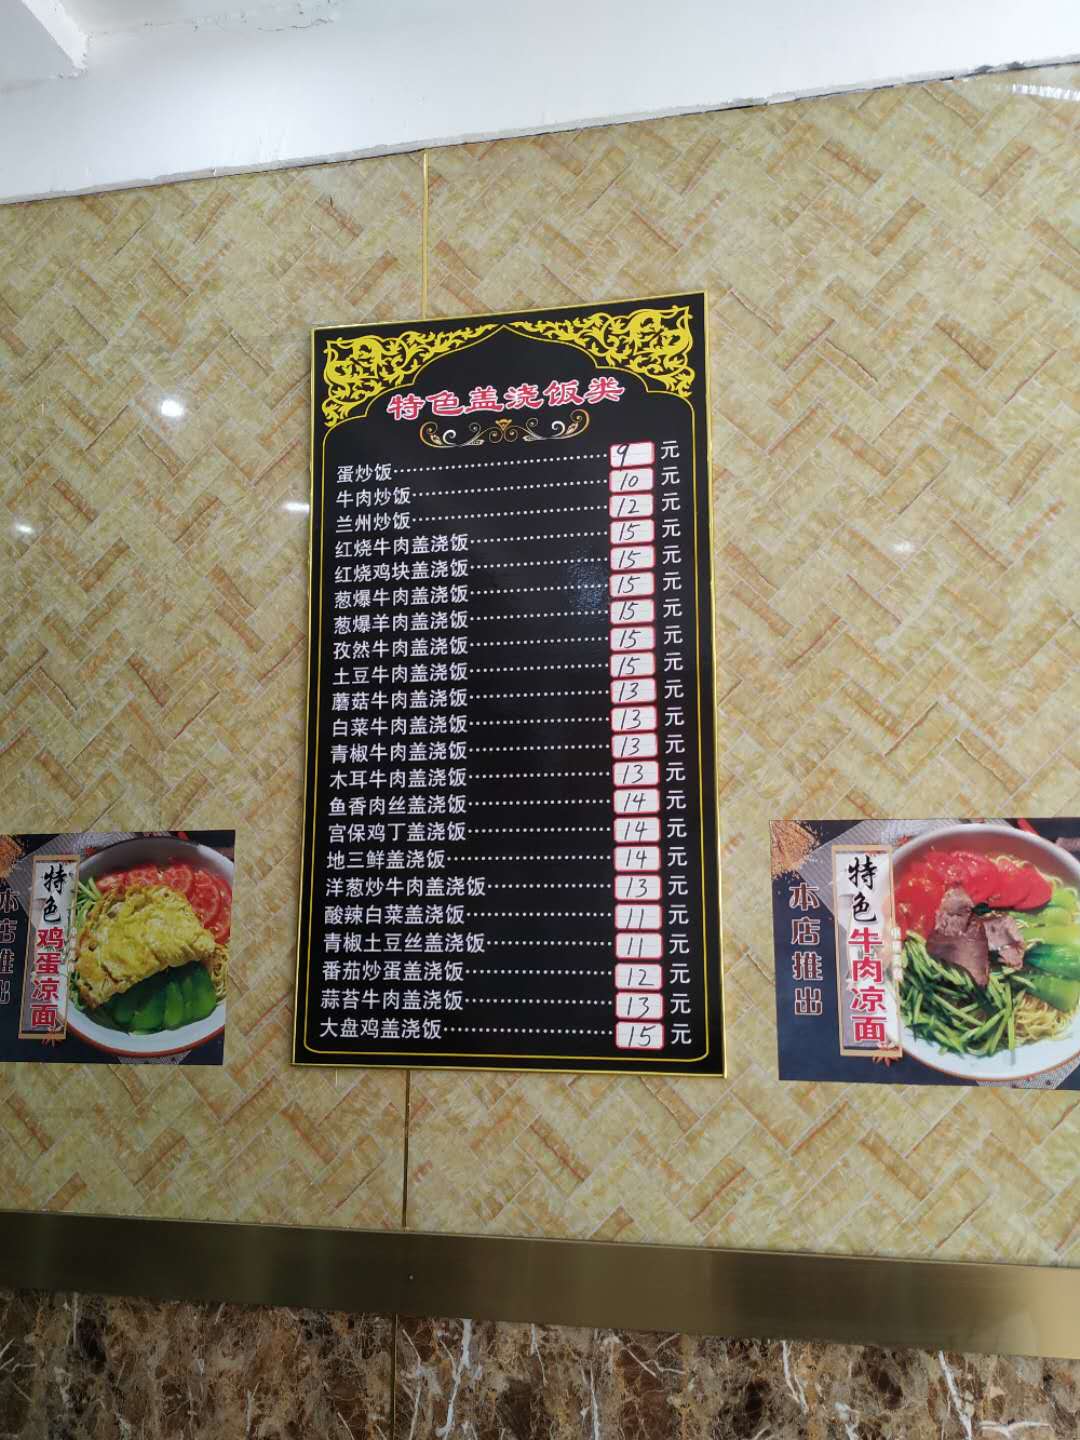 特色盖浇饭类
蛋炒饭 9 元
牛肉炒饭 10 元
兰州炒饭 12 元
红烧牛肉盖浇饭 15 元
红烧鸡块盖浇饭 15 元
葱爆牛肉盖浇饭 15 元
葱爆羊肉盖浇饭 15 元
孜然牛肉盖浇饭 15 元
土豆牛肉盖浇饭 15 元
蘑菇牛肉盖浇饭 13 元
白菜牛肉盖浇饭 13 元
青椒牛肉盖浇饭 13 元
木耳牛肉盖浇饭 13 元
鱼香肉丝盖浇饭 14 元
宫保鸡丁盖浇饭 14 元
地三鲜盖浇饭 14 元
洋葱炒牛肉盖浇饭 13 元
酸辣白菜盖浇饭 11 元
青椒土豆丝盖浇饭 11 元
番茄炒蛋盖浇饭 12 元
蒜苔牛肉盖浇饭 13 元
大盘鸡盖浇饭 15 元
本店推出
特色鸡蛋凉面
本店推出
特色牛肉凉面